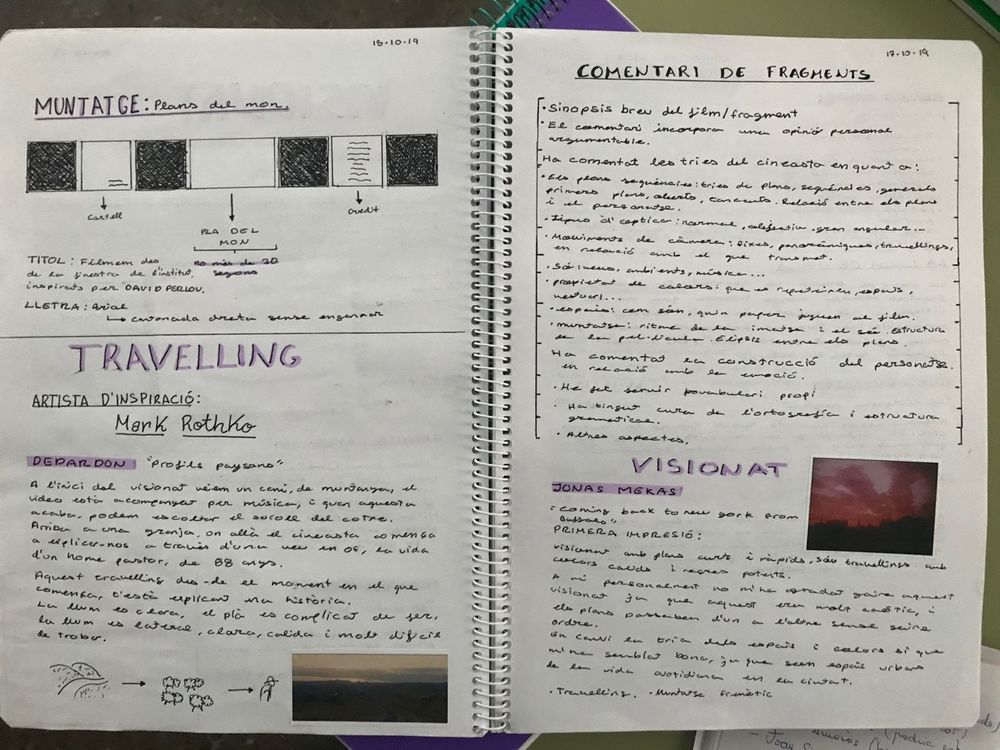 18·10·19
MUNTATGE: Plans del mon.
Cartell
Credit
PLA DEL
MON
no més de 30
segons
TITOL: Filmem des
de la finestra de l'institut,
inspirats per DAVID PERLOV.
LLETRA: Arial
cantonada dreta sense enganxar
TRAVELLING
ARTISTA D'INSPIRACIÓ:
Mark Rothko
DEPARDON "Profils paysans"
A l'inici del visionat veiem un camí, de muntanya, el
video està acompanyat per música, i quan aquesta
acaba, podem escoltar el soroll del cotxe.
Arriba a una granja, on allà el cineasta comença
a explicar-nos a través d'una veu en off, la vida
d'un home pastor, de 88 anys.
Aquest travelling des-de el moment en el que
comença, t'està explicant una història.
La llum es clara, el plà es complicat de fer,
la llum es lateral, clara, calida i molt dificil
de trobar.
17·10·19
COMENTARI DE FRAGMENTS
· Sinopsis breu del film/fragment
· El comentari incorpora una opinió personal
argumentable.
Ha comentat les tries del cineasta en quant a:
· Els plans seqüències: tries de plans, seqüències, generals
primers plans, oberts, tancats. Relació entre els plans
i el personatge.
· Tipus d'optica: normal, objectiu, gran angular...
· Moviments de càmera: fixes, panoràmiques, travellings,
en relació amb el que transmet.
· Só: veus, ambients, música...
· propietat de colors: que es repeteixen, espais,
vestuari...
· espais: com són, quin paper juguen al film.
· muntatge: ritme de la imatge i el só. Estructura
de la pel·lícula. Elipsis entre els plans.
Ha comentat la construcció del personatge
en relació amb la emoció.
· Ha fet servir vocabulari propi
· Ha tingut cura de l'ortografia i estructura
gramatical.
· Altres aspectes.
VISIONAT
JONAS MEKAS
"Coming back to new york from
Buffalo"
PRIMERA IMPRESIÓ:
Visionat amb plans curts i ràpids, són travellings amb
colors calids i negres potents.
A mi personalment no m'ha agradat gaire aquest
visionat ja que aquest era molt caòtic, i
els plans passaben d'un a l'altre sense seguir
ordre.
En canvi la tria dels espais i colors si que
m'ha semblat bona, ja que seon espais urbans
de la vida quotidiana en la ciutat.
· Travelling. · Muntatge frenètic